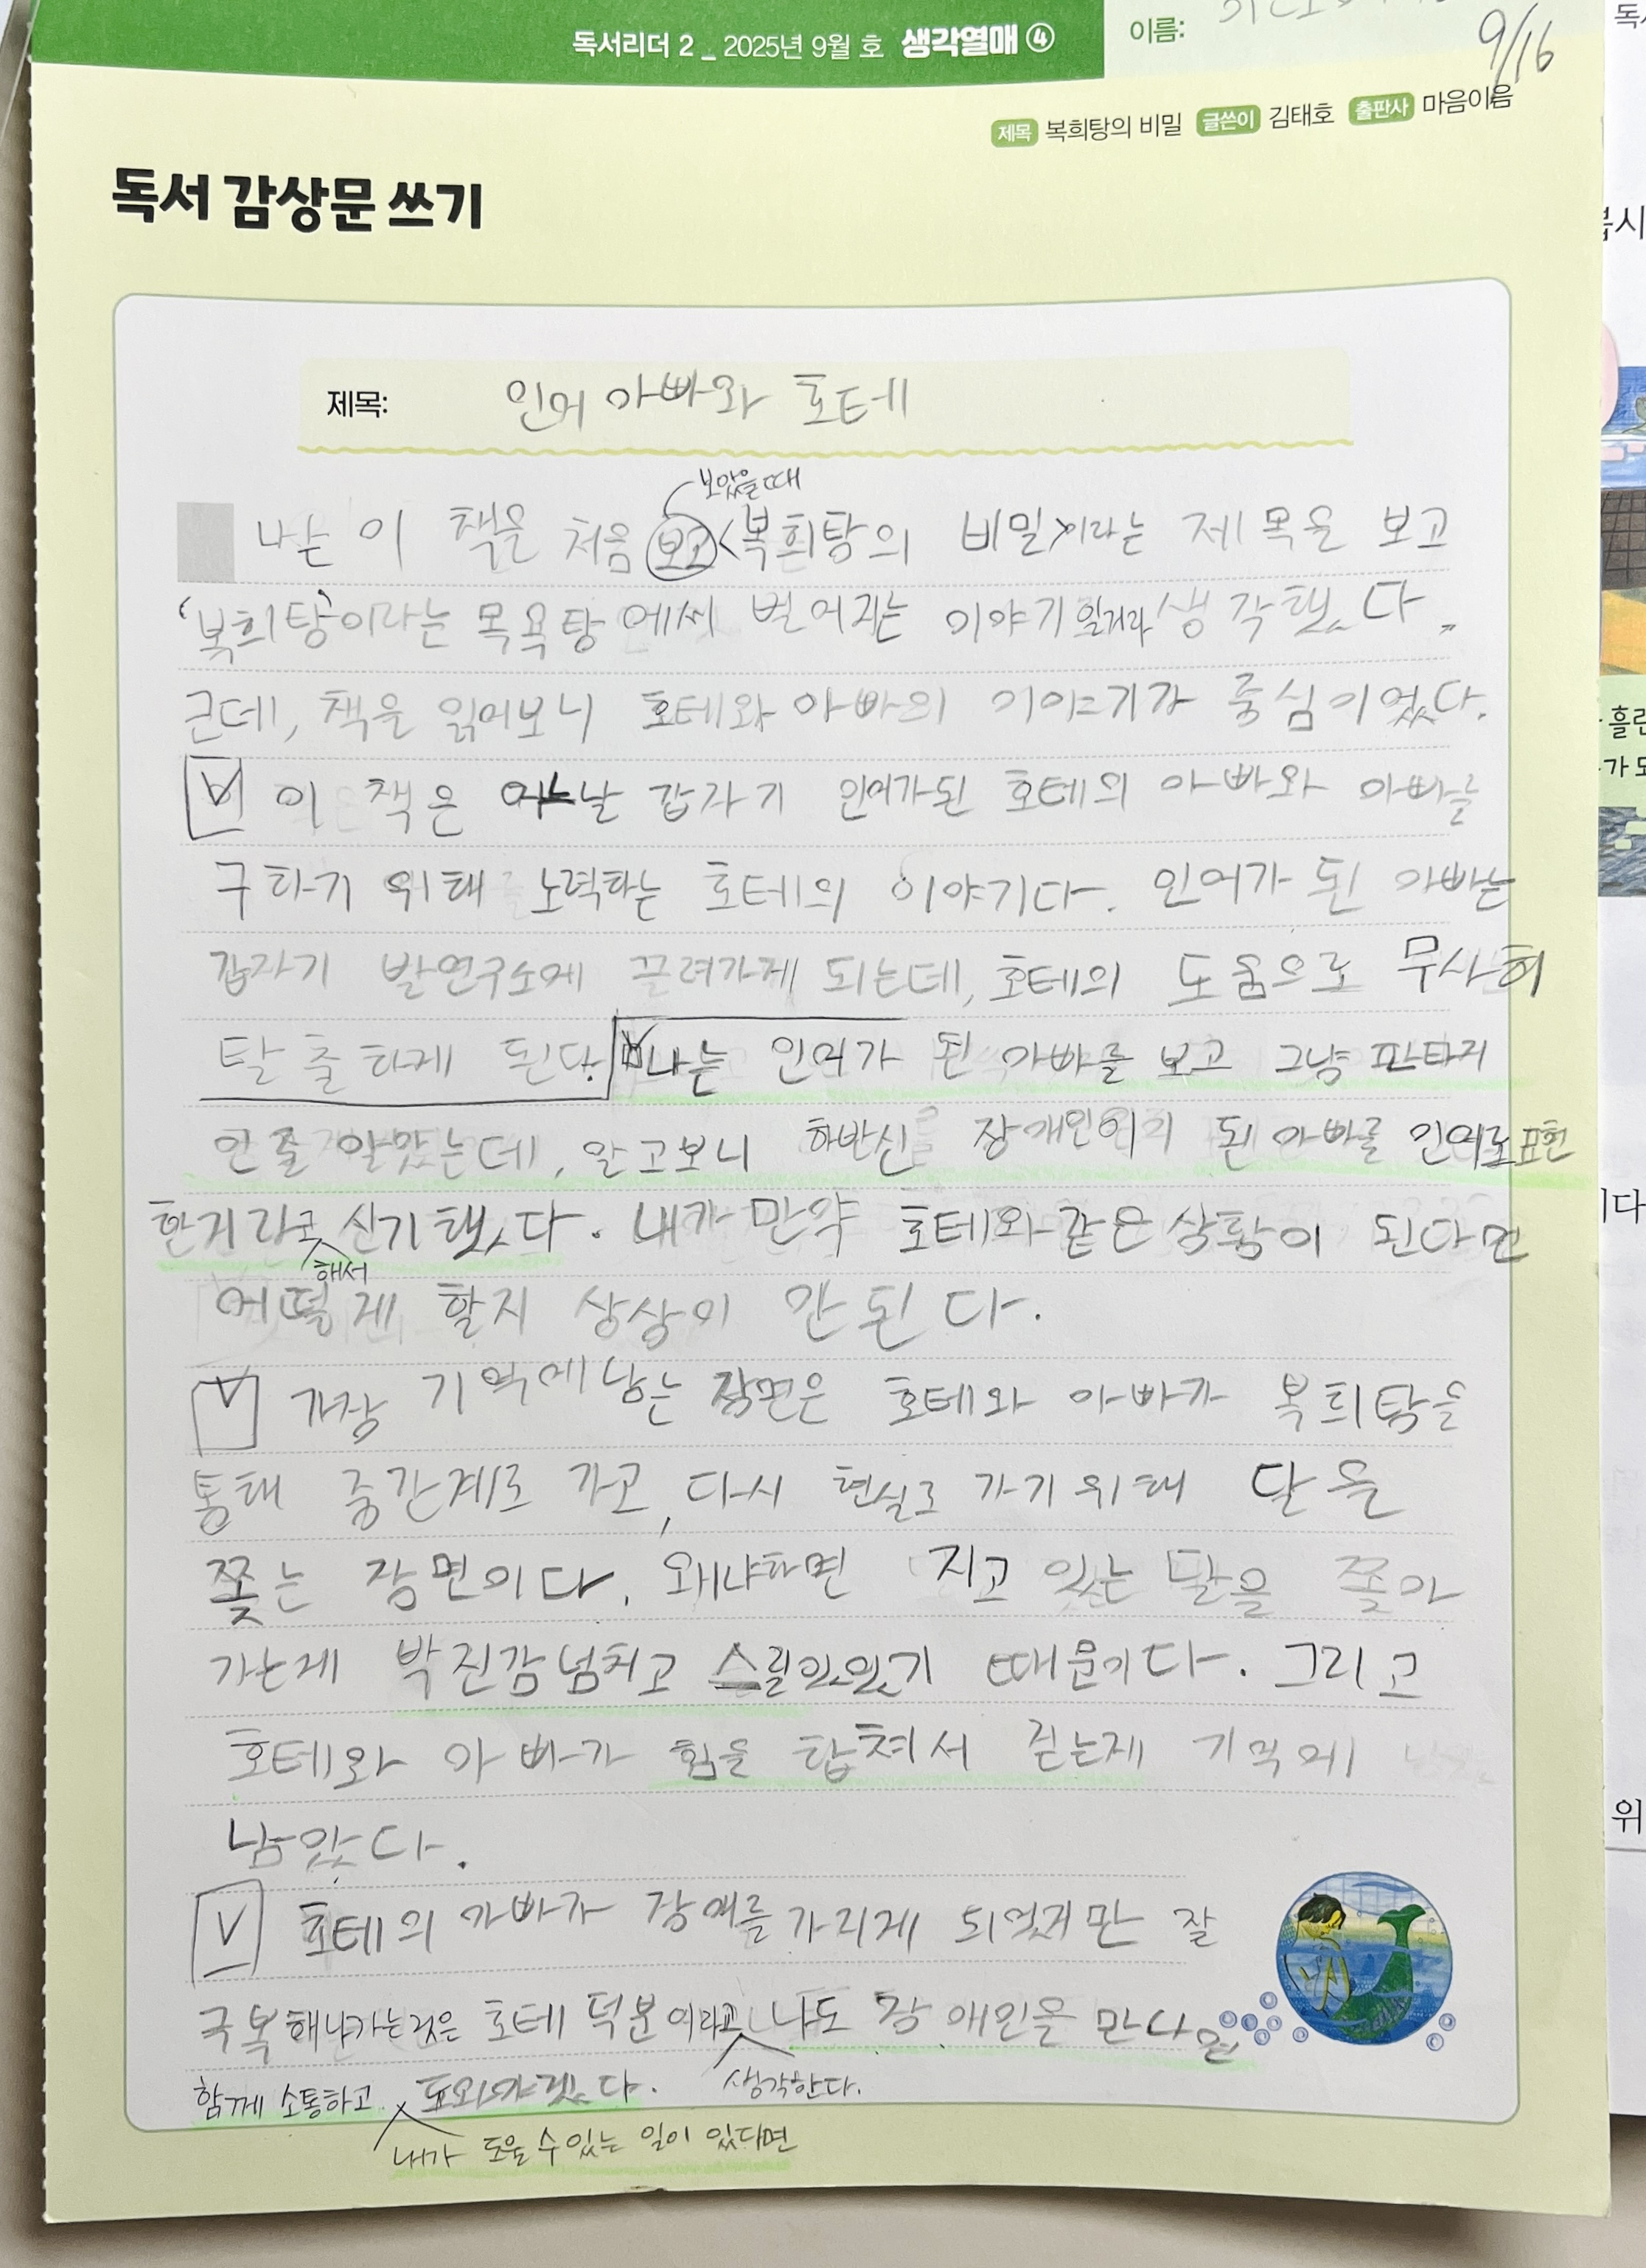 독서리더 2 _ 2025년 9월 호 생각열매 ④
이름:
9/16
제목 복희탕의 비밀 글쓴이 김태호 출판사 마음이음
독서 감상문 쓰기
제목: 인어 아빠와 호테
보았을때
나는 이 책을 처음 보고 <복희탕의 비밀>이라는 제목을 보고
'복희탕'이라는 목욕탕에서 벌어지는 이야기일거라 생각했다.
근데, 책을 읽어보니 호테와 아빠의 이야기가 중심이었다.
이 책은 어느날 갑자기 인어가된 호테의 아빠와 아빠를
구하기 위해 노력하는 호테의 이야기다. 인어가 된 아빠는
갑자기 발연구소에 끌려가게 되는데, 호테의 도움으로 무사히
탈출하게 된다. 나는 인어가 된 아빠를 보고 그냥 판타지
인줄 알았는데, 알고보니 하반신 장애인이 된 아빠를 인어로표현
한거라고 신기했다. 내가 만약 호테와같은상황이 된다면
해서
어떻게 할지 상상이 안된다.
가장 기억에남는 장면은 호테와 아빠가 복희탕을
통해 중간계로 가고, 다시 현실로 가기위해 달을
쫓는 장면이다. 왜냐하면 지고 있는 달을 쫓아
가는게 박진감넘치고 스릴있었기 때문이다. 그리고
호테와 아빠가 힘을 합쳐서 걷는게 기억에
남았다.
호테의 아빠가 장애를 가리게 되었지만 잘
극복해나가는것은 호테 덕분이라고 나도 장애인을 만나면
생각한다.
함께 소통하고 도와야겠다.
내가 도울 수 있는 일이 있다면